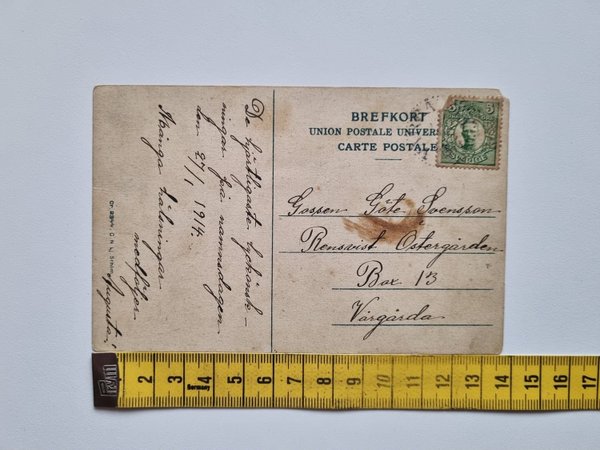 De hjertligaste lyckönsk-
ningar på namnsdagen
den 27/1 1914.
Många hälsningar
medföljer
Augusta!
BREFKORT
UNION POSTALE UNIVERS
CARTE POSTALE
5 5
Gossen Göte Svensson
Rensvist Östergården
Box 13
Vårgårda
2 3 4 5 6 7 8 9 10 11 12 13 14 15 16 17
Germany